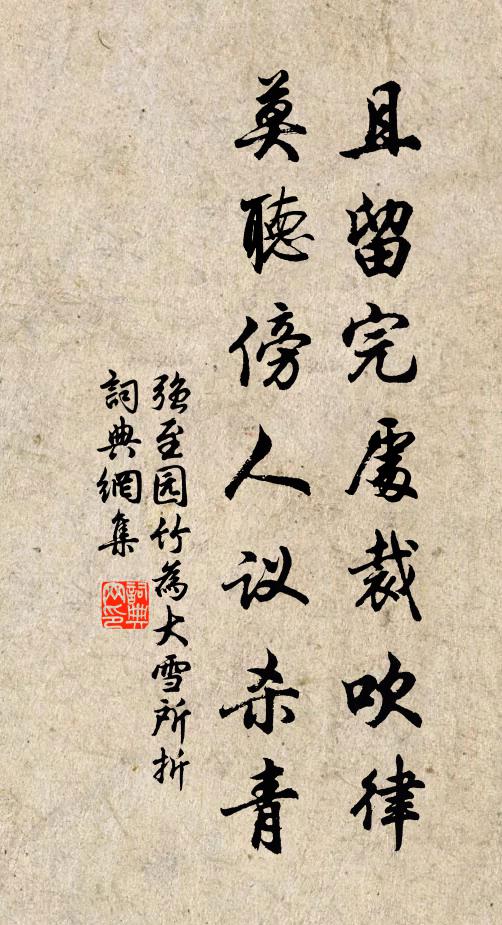 且留完處裁吹律
莫聽傍人议杀青
強至园竹為大雪所折
詞典網集
詞典网印